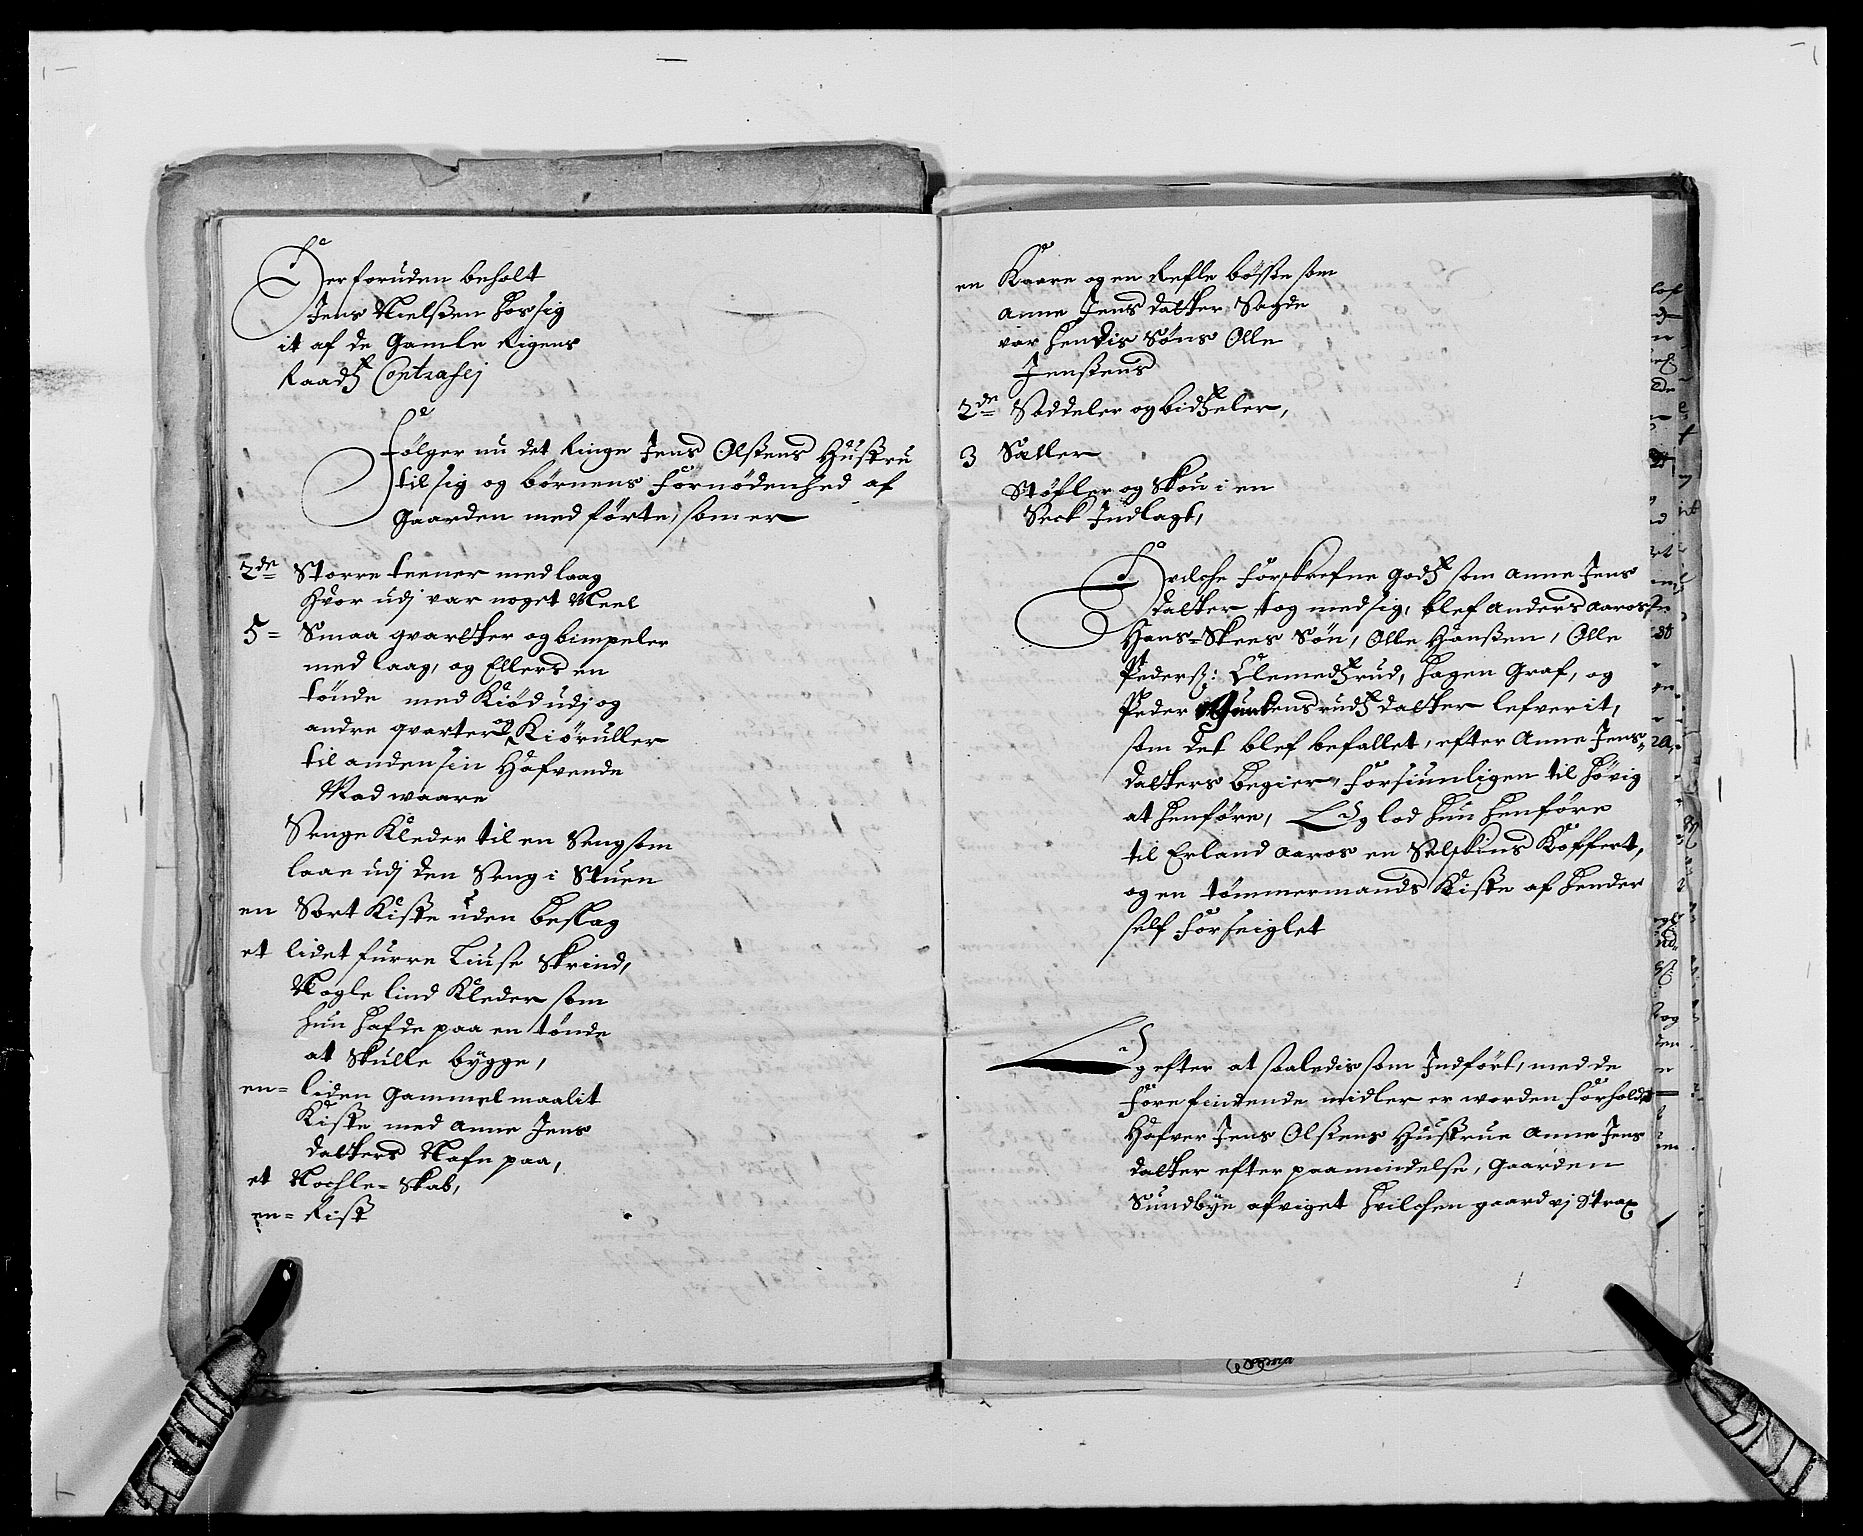 Derforuden beholt
Jens Nielßen hos sig
it af de Gamle Rigens
Raads Contrafej
Følger nu det Ringe Jens Olßens Hustru
til sig og børnens Fornødenhed af
Gaarden med førte, som er
2de Storre teener med laag
hvor udj var noget Meel
5 = Smaa qvarter og bimpeler
med laag, og Ellers en
tønde med Kiød udj og
andre qvarter og Kiøruller
til anden sin Hafvende
Madwaare
Senge Kleder til en Seng som
laae udj den Seng i Stuen
en Sort Kiste uden Beslag
et lidet furre Liuse Skrind,
Nogle lind Kleder som
hun hafde paa en tønde
at Skulle bygge,
en = liden Gammel maalit
Kiste med Anne Jens
datters Nafn paa,
et Nochle = Skab,
en = Rist
en Kaare og en Refle bøsse som
Anne Jens datter Sagde
var hendis Søns Olle
Jenßens
2de Saddeler og bidtzeler,
3 Sæller
Støfler og Skou i en
Seck Indlagt,
Hvilche Forskrefne Godtz som Anne Jens
datter tog med sig, blef Anders Aaros
Hans = Skees Søn, Olle Hanßen, Olle
Pederß: Clemedtzrud, Hagen Graf, og
Peder datter lefverit,
som det blef befallet, efter Anne Jens
datters Begier, Forsiunligen til Høvig
at henføre, Og lod hun henføre
til Erland Aaros en Selskins Koffert,
og en tømmermands Kiste af hender
self Forseiglet
Og efter at saaledis som Indført, med de
Forefindende midler er worden Forholdt
Hafver Jens Olßens Hustrue Anne Jens
datter efter paamindelse, Gaarden
Sundbye afviget hvilchen gaard vj Strax